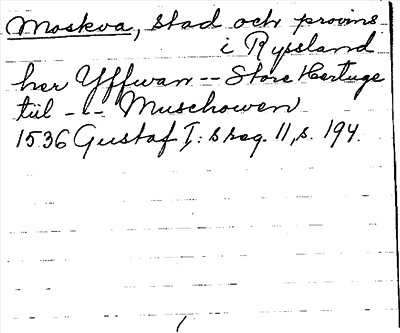 Moskva, stad och provins
i Ryssland
her Yffwan -- Store Hertuge
tiil --- Muschowen
1536 Gustaf I: s reg. 11, s. 194.